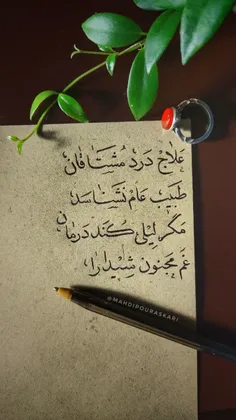 علاج درد مشتاقان
طبیب عام نشناسد
مگر لیلی کند درمان
غم مجنون شیدا را
@MAHDIPOURASKARI